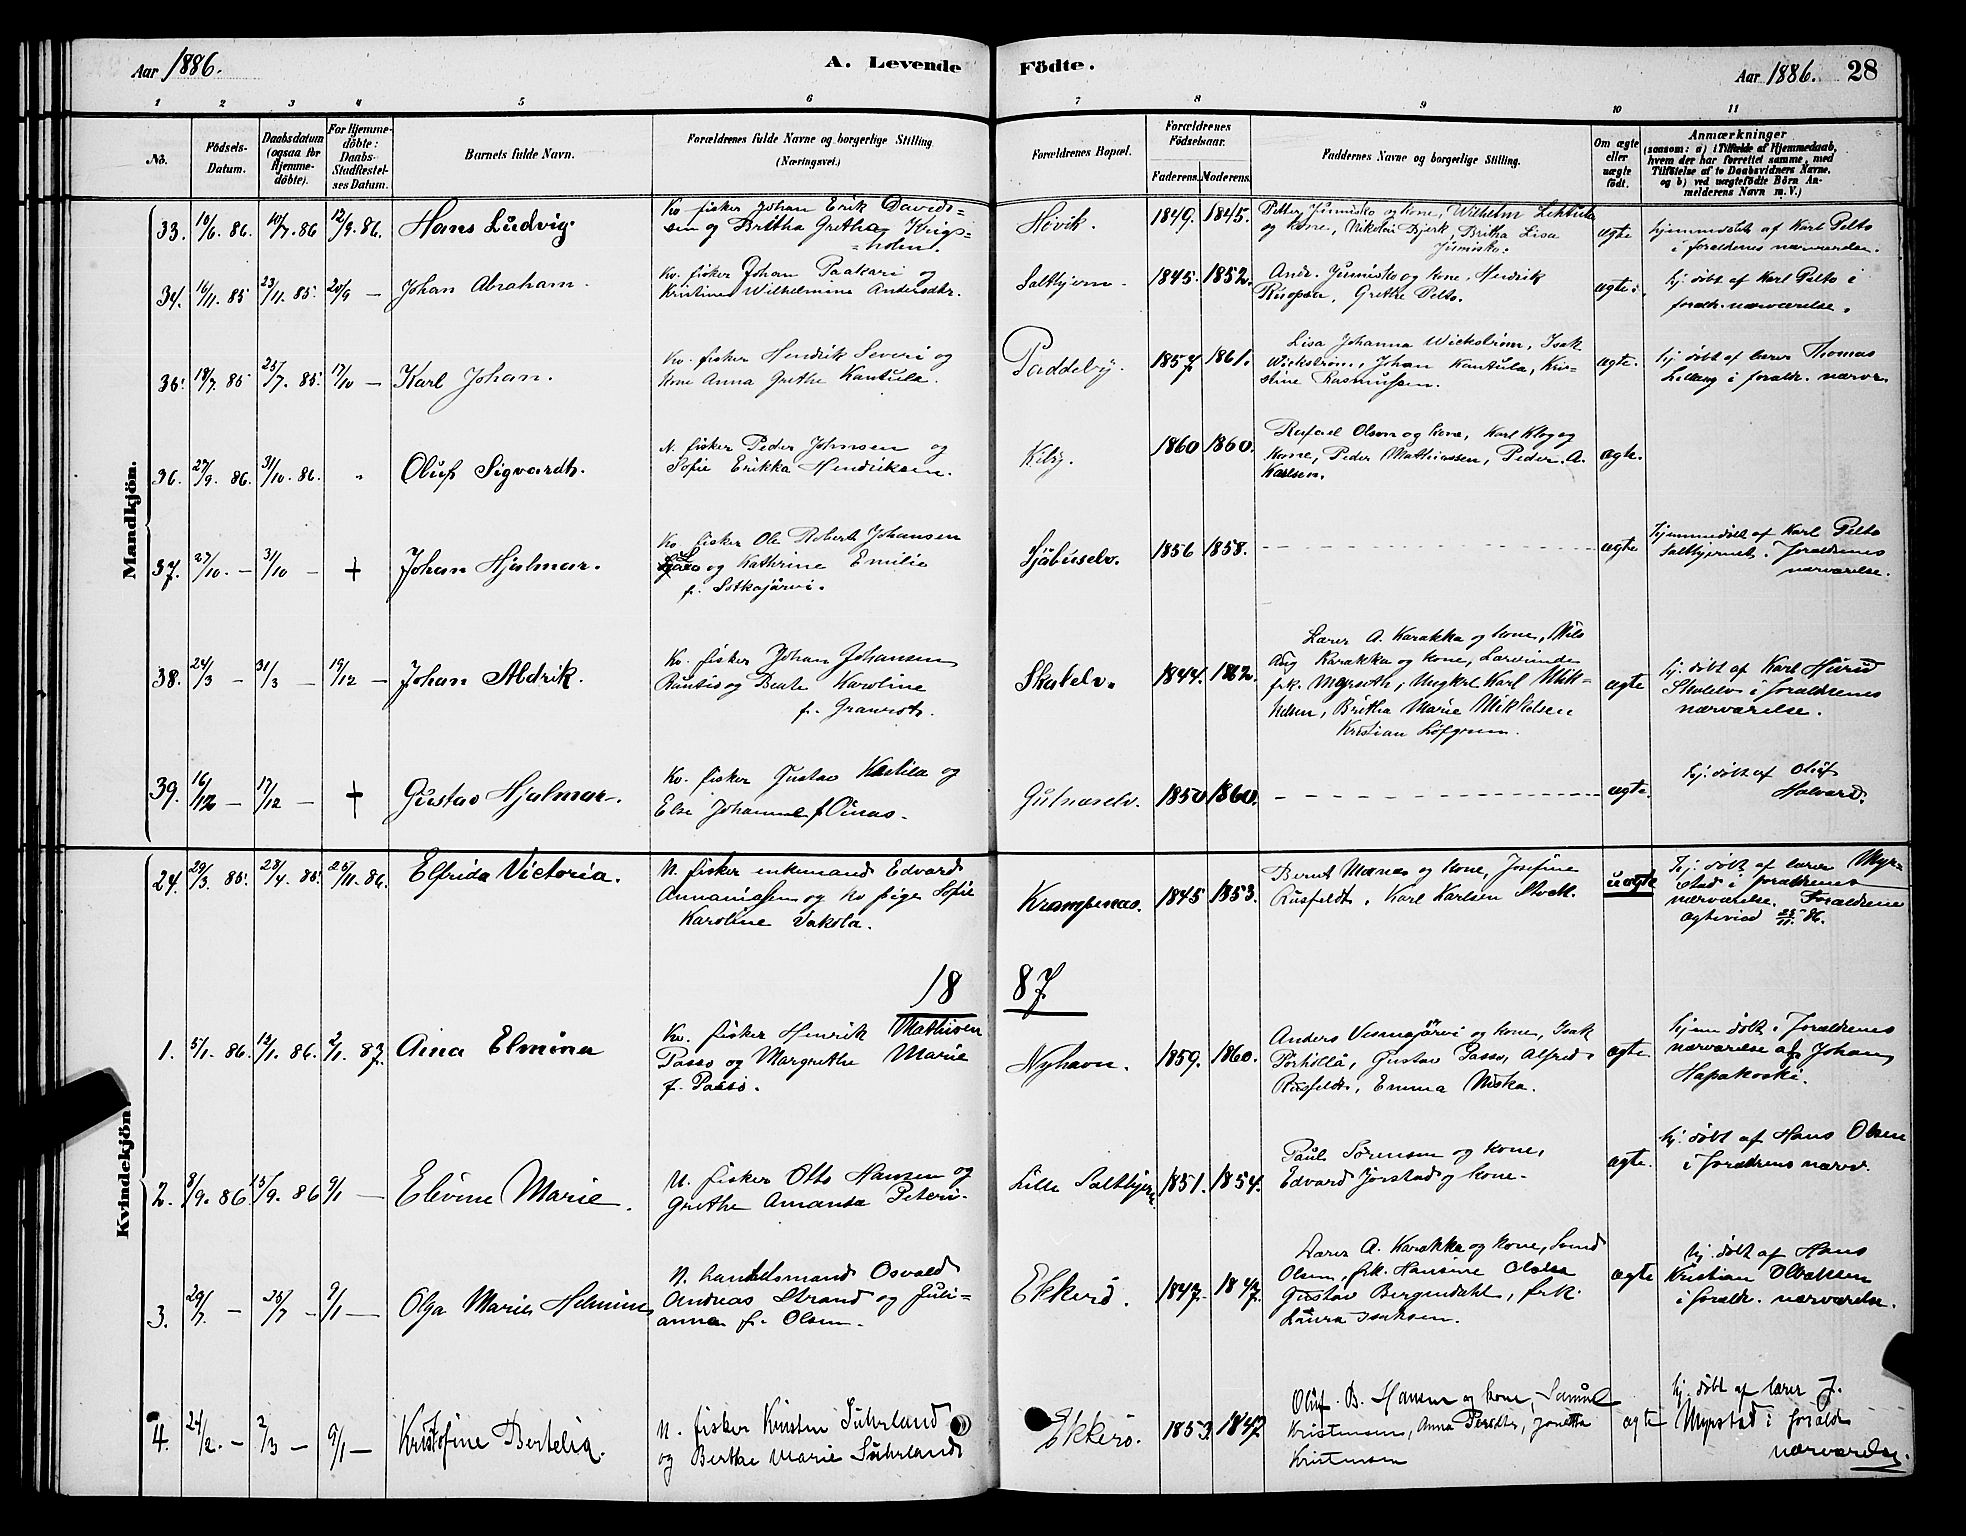 Aar 1886.
A. Levende Födte.
Aar 1886. 28
1 2 3 4 5 6 7 8 9 10 11
No.
Födsels-Datum.
Daabsdatum (ogsaa for Hjemme-döbte).
For Hjemme-döbte: Daabs-Stadfæstel-ses Datum.
Barnets fulde Navn.
Forældrenes fulde Navne og borgerlige Stilling. (Næringsvei.)
Forældrenes Bopæl.
Forældrenes Födselsaar.
Faderens. Moderens.
Faddernes Navne og borgerlige Stilling.
Om ægte eller uægte födt.
Anmærkninger
(saasom: a) i Tilfælde af Hjemmedaab,
hvem der har forrettet samme, med
Tilföielse af to Daabsvidners Navne.
og b) ved uægtefödte Börn An-
melderens Navn m. V.)
Mandkjön.
33. 10/6. 86. 10/7. 86 12/9. 86. Hans Ludvig.
Kv. fisker Johan Erik Davids=
sen og Britha Grethe
Hövik. 1849. 1845.
Petter Junnisko og kone, Wilhelm
og kone, Nikolai Bjerk, Britha Lisa
Junnisko.
ægte
hjemmedöbt af Karl Pelto
i foraldrenes nærværelse.
34. 16/11. 85 23/11. 85. 20/9 — Johan Abraham.
Kv. fisker Johan Paakari og
Kristine Wilhelmine Andersdtr.
Saltkjern. 1845. 1852.
Andr. Junnisko og kone, Hendrik
Grethe Pelto.
ægte.
hj. döbt af Karl Pelto i
foraldr. nærværelse.
35. 18/7. 85 25/7. 85. 17/10 — Karl Johan.
Kv. fisker Hendrik Severi og
kone Anna Grethe Kantula.
Paddeby. 1857 1861.
Lisa Johanna Wickström, Isak
Wickström, Johan Kantula, Kri-
stine Rasmussen.
ægte.
hj. döbt af lærer Thomas
i foraldr. nærvr.
36. 27/9. 86. 31/10. 86. „ Oluf Sigvardt.
N. fisker Peder Johnsen og
Sofie Erikka Hendriksen.
Kiby. 1860 1860.
Rafael Olsen og kone, Karl Klog og
kone, Peder Mathiassen, Peder A.
Karlsen.
ægte.
37. 27/10. — 31/10 — + Johan Hjalmar.
Kv. fisker Ole Robert Johansen
og Kathrine Emilie
f. Sotkajärvi.
Sjåbuselv. 1856 1858.
ægte
hjemmedöbt af Karl Pelto
Saltkjernet i foraldrenes
nærværelse.
38. 24/3 — 31/3 — 19/12 — Johan Aldrik.
Kv. fisker Johan Johansen
Rautio og Beate Karoline
f. Granrot.
Skalelv. 1844. 1862.
Lærer A. Karakka og kone, Nils
Aug Karakka og kone, Lærerinde
frk. Ungkrl Karl Mik-
kelsen, Britha Marie Mikkelsen
Kristian Löfgren.
ægte
hj. döbt af Karl Hurid
Skalelv i foraldrenes
nærværelse.
39. 16/12 — 17/12 — + Gustav Hjalmar.
Kv. fisker Gustav Kostila og
Else Johanne f Oinas.
Gulnæselv. 1850 1860.
ægte.
hj. döbt af Oluf
Halvard.
Kvindekjön.
24. 29/3. 85. 28/4. 85. 25/11. 86. Elfrida Victoria.
N. fisker enkemand Edvard
Annaniassen og kv pige Sofie
Karoline Vakola.
Krampenæs. 1845 1853.
Bernt Mænas og kone, Josefine
Rusfeldt, Karl Karlsen Stock.
uægte
hj. döbt af lærer Myr-
stad i foraldrenes
nærværelse. Foraldrene
ægteviet 25/11. 86.
18 87
1. 5/1. 86. 12/1. 86. 2/1. 87. Aina Elmina
Kv. fisker Henrik Mathisen
Passo og Margrethe Marie
f. Passo.
Nyhavn. 1859. 1860.
Anders Vesmajärvi og kone, Isak
Pörhöllä, Gustav Passo, Alfred
Rusfeldt, Emma Niska.
ægte
hjem döbt i foraldrenes
nærværelse af Johan
Hapakoski.
2. 8/9. 86 15/9. 86 9/1 — Elevine Marie.
N. fisker Otto Hansen og
Grethe Amanda Peters.
Lille Saltkjern 1851. 1854.
Paul Sörensen og kone,
Edvard Jörstad og kone.
ægte.
hj. döbt af Hans Olsen
i foraldrens nærv.
3. 20/7 — 25/7 — 9/1 — Olga Marie Helmine
N. handelsmand Osvald
Andreas Strand og Juli=
anna f. Olsen.
Ekkerö. 1847. 1847.
Lærer A. Karakka og kone,
Olsen, frk. Hansine Olsen
Gustav Bergendahl, frk.
Laura Isaksen.
ægte
hj. döbt af Hans
Kristian Olbaksen
i foraldr. nærværelse.
4. 24/2. — 2/3 — 9/1 — Kristofine Bertelia.
N. fisker Kristen Suhrland
og Berthe Marie Suhrland
Ekkerö. 1853. 1847
Oluf B. Hansen og kone, Samuel
Kristensen, Anna Jonetta
Kristensen
ægte
hj. döbt af lærer J.
Myrstad i forald
nærværelse.